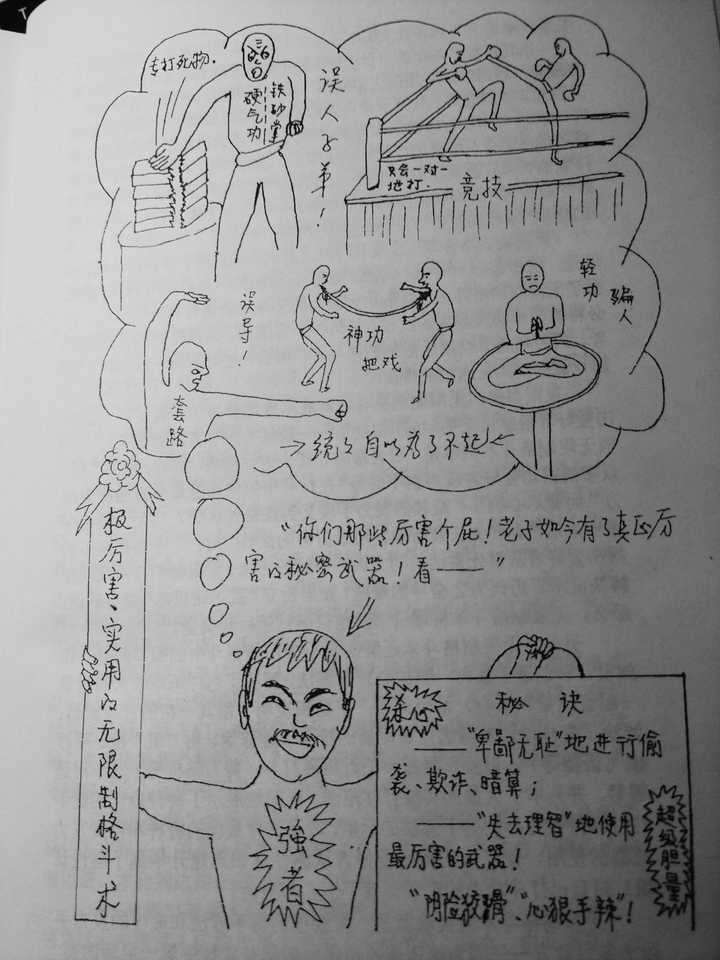 专打死物.
铁砂掌
硬气功
误人子弟！
只会一对一
地打.
竞技
误导！
套路
神功
把戏
轻功
骗人
统统自以为了不起！
“你们那些厉害个屁！老子如今有了真正厉
害的秘密武器！看——”
极厉害、实用的无限制格斗术
強者
杀心
秘诀
——“卑鄙无耻”地进行偷
袭、欺诈、暗算；
——“失去理智”地使用
最厉害的武器！
“阴险狡猾”、“心狠手辣”！
超级胆量